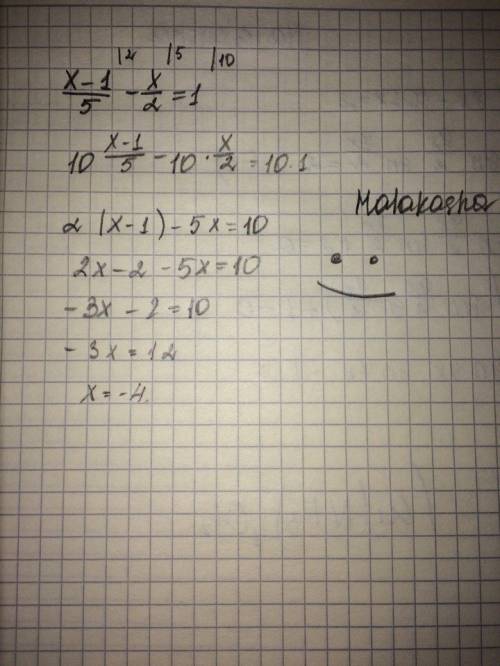 |2 |5 |10
x-1/5 - x/2 = 1
10 x-1/5 - 10 · x/2 = 10.1
2 (x-1) - 5x = 10
2x - 2 - 5x = 10
-3x - 2 = 10
-3x = 12
x = -4.